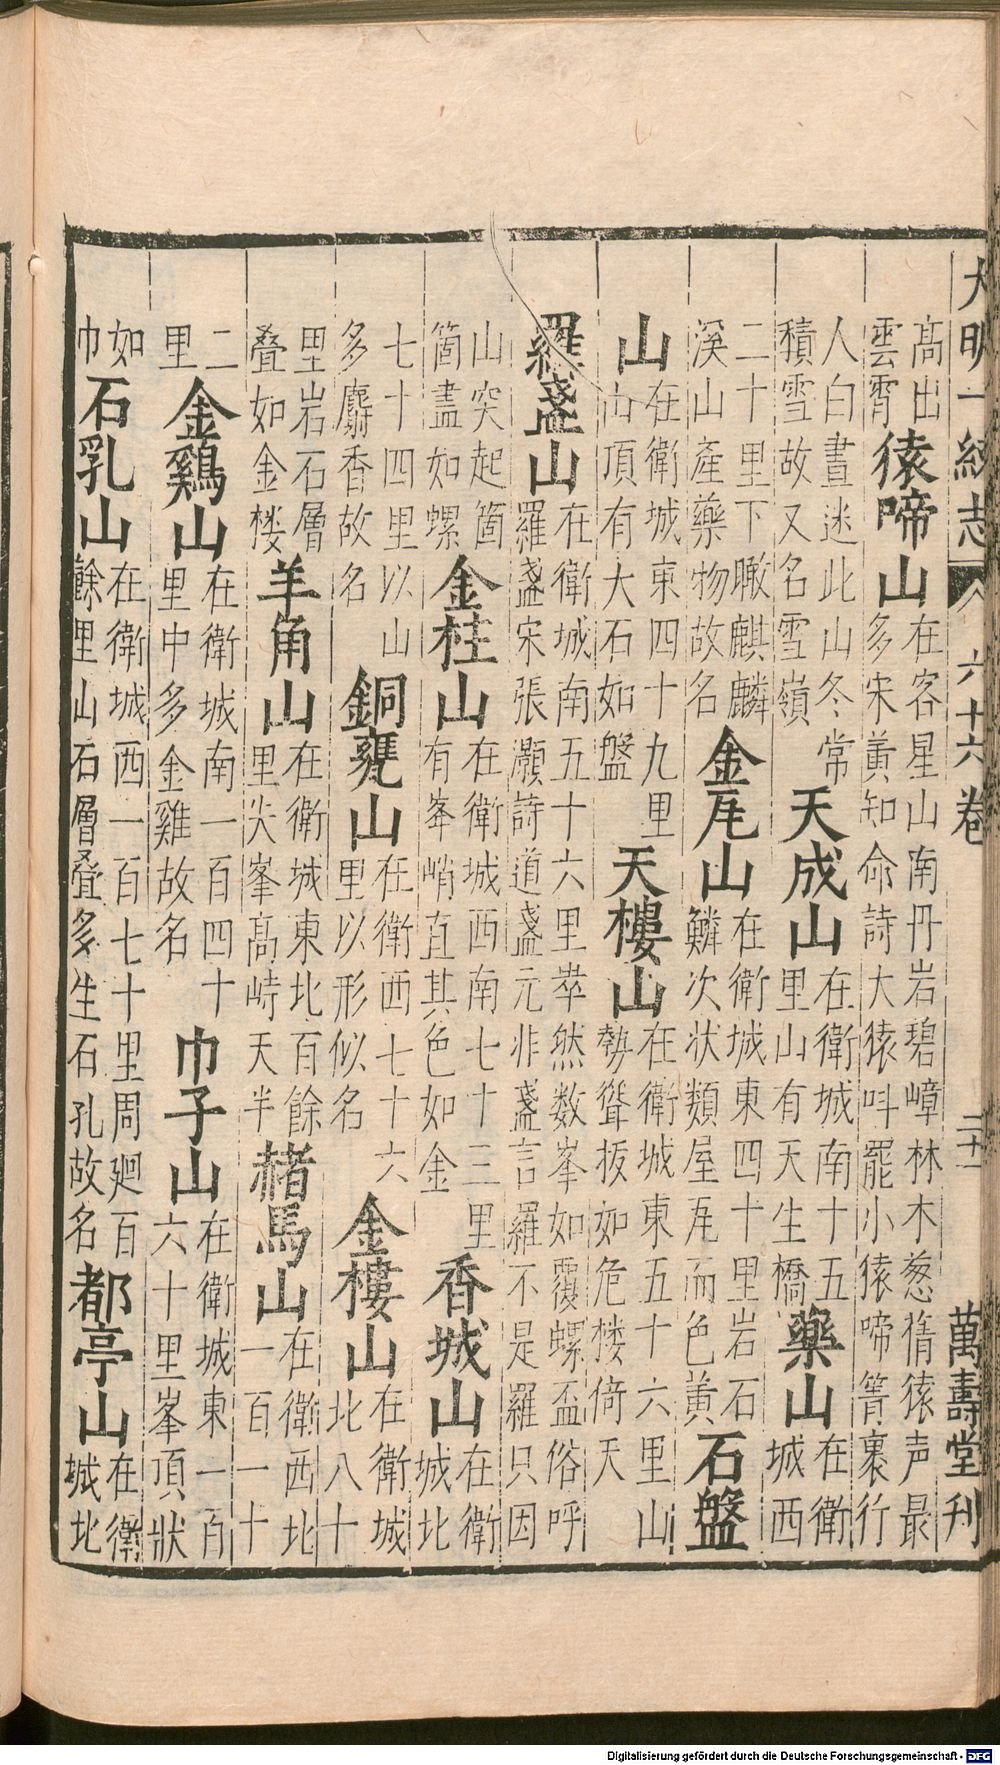 大明一統志 六十六卷 二十一 萬壽堂刊
高出雲霄猿啼山在客星山南丹岩碧嶂林木葱蒨猿声最多宋黃知命詩大猿呌罷小猿啼箐裏行
人白晝迷此山冬常積雪故又名雪嶺天成山在衛城南十五里山有天生橋藥山在衛城西
二十里下瞰麒麟溪山產藥物故名金瓦山在衛城東四十里岩石鱗次状類屋瓦而色黃石盤
山在衛城東四十九里山頂有大石如盤天樓山在衛城東五十六里山勢聳拔如危楼倚天
羅盞山在衛城南五十六里崒然数峯如覆螺盃俗呼羅盞宋張灝詩道盞元非盞言羅不是羅只因
山突起箇箇盡如螺金桂山在衛城西南七十三里有峯峭直其色如金香城山在衛城北
七十四里以山多麝香故名銅甕山在衛西七十六里以形似名金樓山在衛城北八十
里岩石層叠如金楼羊角山在衛城東北百餘里尖峯高峙天半赭馬山在衛西北一百一十
二里金鷄山在衛城南一百四十里中多金雞故名巾子山在衛城東一百六十里峯頂狀
如巾石乳山在衛城西一百七十里周廻百餘里山石層叠多生石孔故名都亭山在衛城北
Digitalisierung gefördert durch die Deutsche Forschungsgemeinschaft - DFG